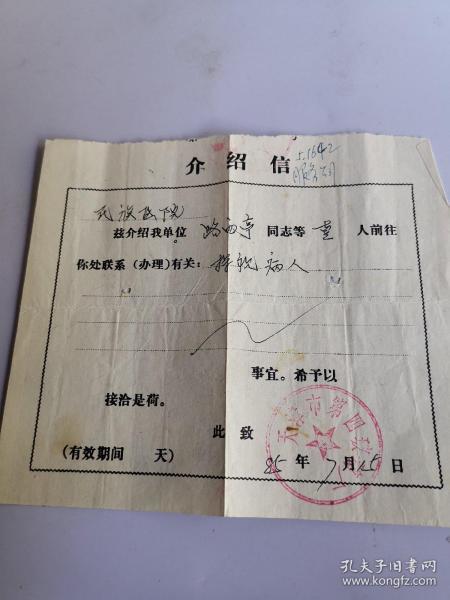 介绍信
5.1642
民族医院
兹介绍我单位 路西亭 同志等 壹 人前往
你处联系(办理)有关: 探視病人
事宜。希予以
接洽是荷。
此致
(有效期间 天) 85年7月15日
天津市第四
孔夫子旧书网
www.kongfz.com